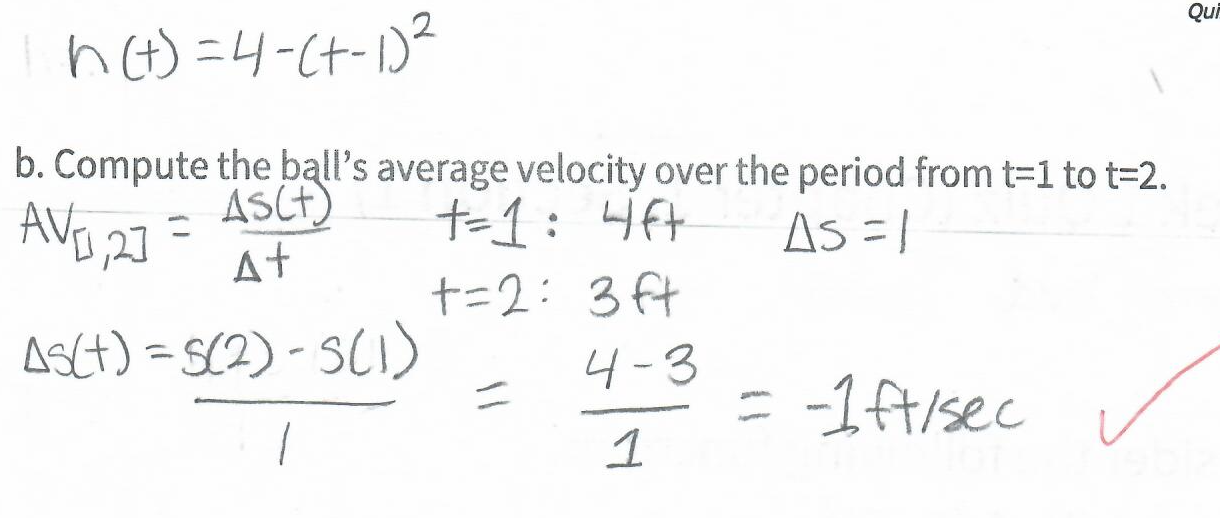 Qui
h(t) = 4-(t-1)²
b. Compute the ball's average velocity over the period from t=1 to t=2.
AV[1,2] = Δs(t)/Δt t=1: 4ft Δs=1
t=2: 3ft
Δs(t) = s(2)-s(1)/1 = 4-3/1 = -1ft/sec